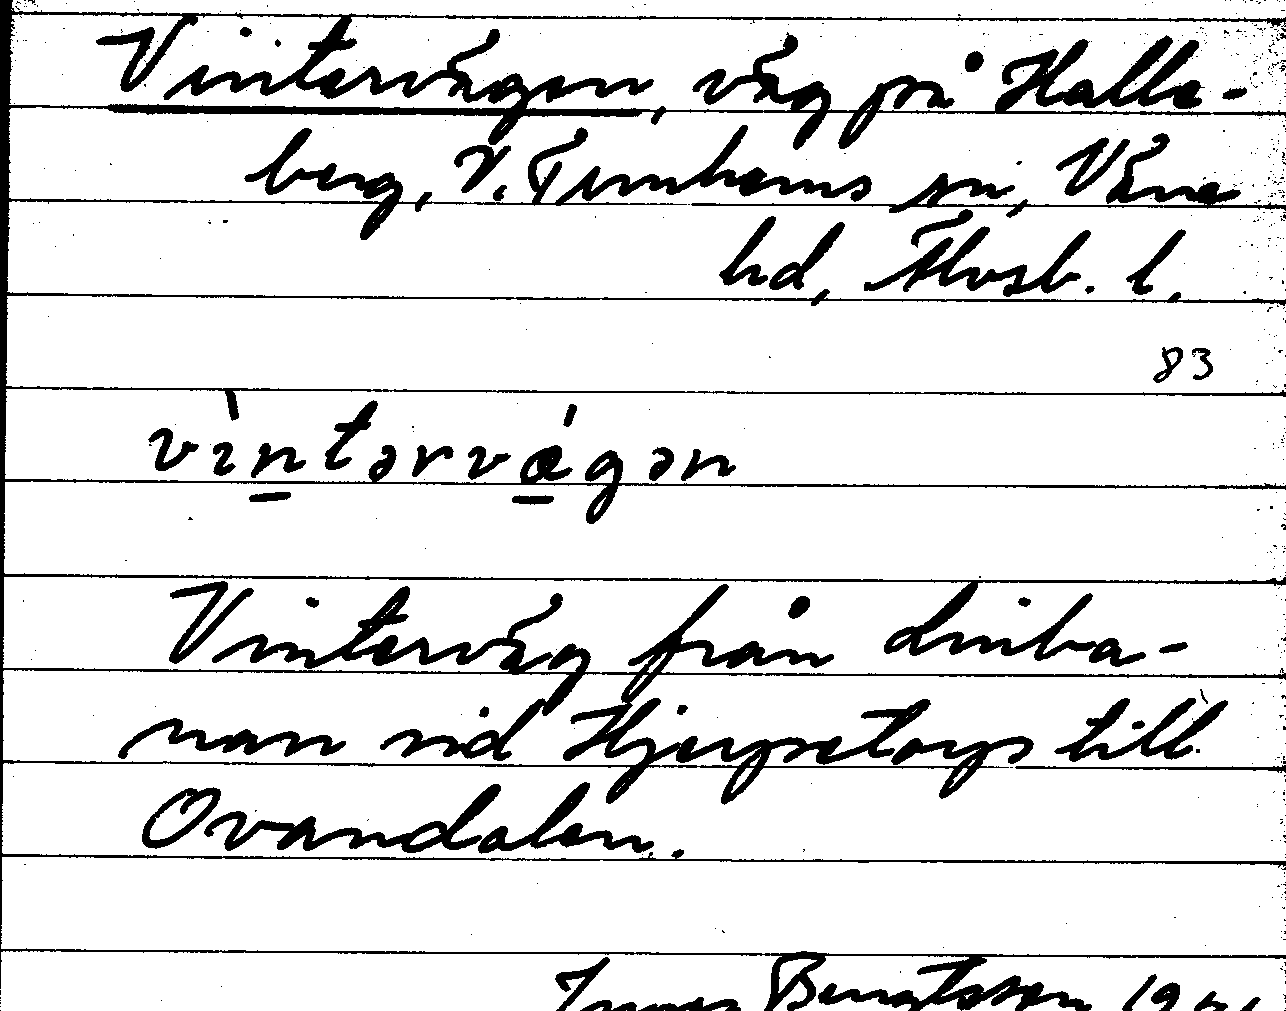 Vintervägen, väg på Halle-
berg, V. Tunhems sn, Väne
hd, Älvsb. l.
83
vìntərvǽgən
Winterväg från linba-
nan vid Hjerpetorps till
Ovandalen.
Bengtsson